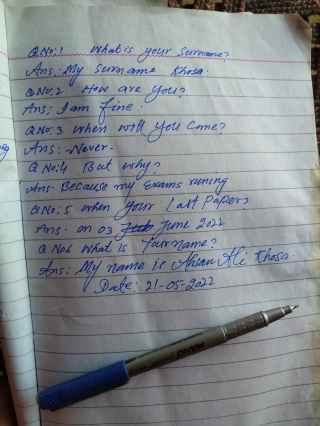 Q No:1 What is your Surname?
Ans: My Surname Khosa.
Q No:2 How are you?
Ans: I am fine.
Q No:3 when will you come?
Ans: Never.
Q No:4 But why?
Ans. Because my Exams runing
Q No:5 when your Last Paper?
Ans. on 03 June 2022
Q No6 What is Yourname?
Ans: My name is Ahsan Ali Khosa.
Date: 21-05-2022
PIANO